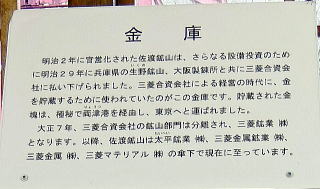 金庫
明治2年に官営化された佐渡鉱山は、さらなる設備投資のため
に明治29年に兵庫県の生野鉱山、大阪製錬所と共に三菱合資会
社に払い下げられました。三菱合資会社による経営の時代に、金
を貯蔵するために使われていたのがこの金庫です。貯蔵された金
塊は、極秘で両津港を経由し、東京へと運ばれました。
大正7年、三菱合資会社の鉱山部門は分離され、三菱鉱業㈱
となります。以降、佐渡鉱山は太平鉱業㈱、三菱金属鉱業㈱、
三菱金属㈱、三菱マテリアル㈱の傘下で現在に至っています。